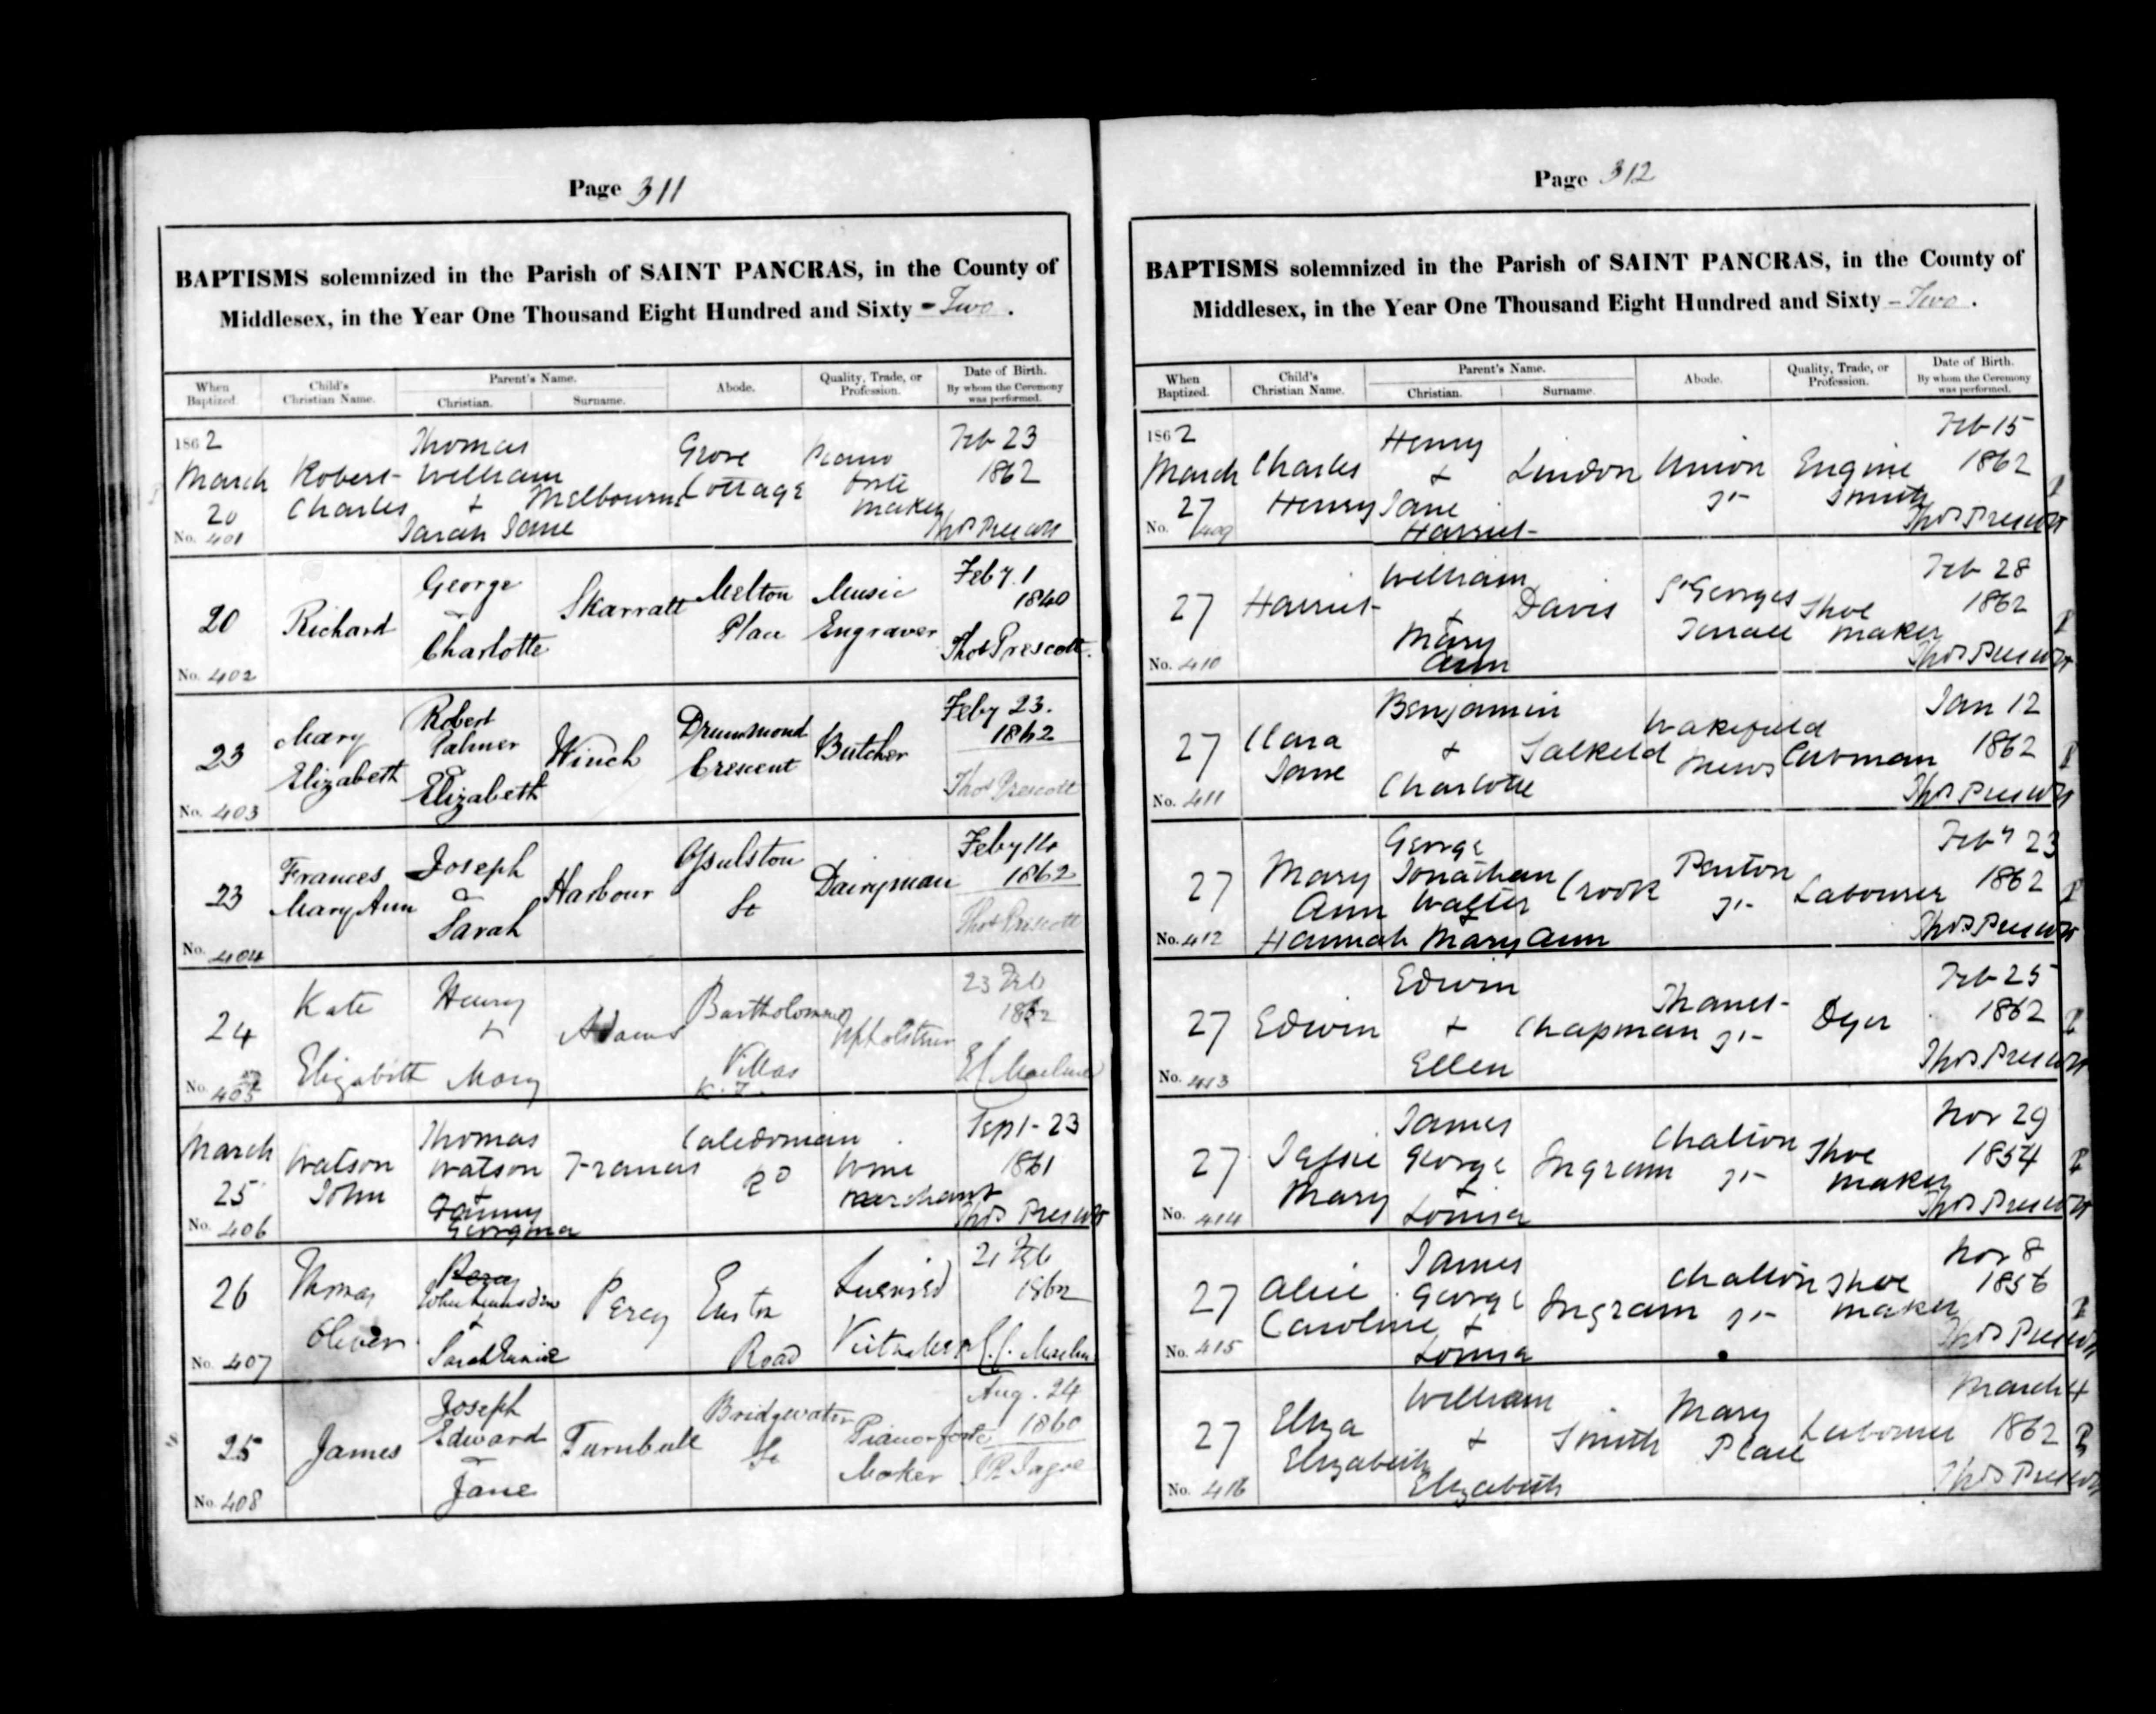 Page 311
BAPTISMS solemnized in the Parish of SAINT PANCRAS, in the County of
Middlesex, in the Year One Thousand Eight Hundred and Sixty - Two.
When Baptized. Child's Christian Name. Parent's Name. Christian. Surname. Abode. Quality, Trade, or Profession. Date of Birth. By whom the Ceremony was performed.
1862 Thomas Grove Piano Feb 23
March Robert William Cottage forte 1862
20 Charles & Melbourne maker
No. 401 Sarah Jane Thos Prescott
George Feby. 1
20 Richard & Skarratt Melton Music 1840
Charlotte Place Engraver Thos Prescott.
No. 402
Mary Robert Drummond Feby 23.
23 Elizabeth Palmer Winch Crescent Butcher 1862
& Elizabeth Thos Prescott
No. 403
Frances Joseph Ossulston Feby
23 Mary Ann & Harbour St Dairyman 1862
Sarah Thos Prescott
No. 404
Kate Henry Bartholomew 23 Feb
24 & Adams Villas Upholsterer 1862
No. 405 Elizabeth Mary K. T.
March Thomas Caledonian Sept- 23
Watson Watson Francis Rd Wine 1861
25 John & merchant
No. 406 Fanny Georgina Thos Prescott
Percy 21 Feb
26 Thomas & Percy Euston Licensed 1862
Oliver Sarah Road Victualler
No. 407
Joseph Bridgewater Aug. 24
25 James Edward Turnbull St Pianoforte 1860
& Jane Maker
No. 408
Page 312
BAPTISMS solemnized in the Parish of SAINT PANCRAS, in the County of
Middlesex, in the Year One Thousand Eight Hundred and Sixty - Two.
When Baptized. Child's Christian Name. Parent's Name. Christian. Surname. Abode. Quality, Trade, or Profession. Date of Birth. By whom the Ceremony was performed.
1862 Henry Feb 15
March Charles & Lindon Union Engine 1862
27 Henry Jane St Smith
No. 409 Harriet Thos Prescott
William Feb 28
27 Harriet & Davis St Georges Shoe 1862
Mary Terrace maker
No. 410 Ann Thos Prescott
Benjamin Jan 12
27 Clara & Salkeld Wakefield Cabman 1862
Jane Charlotte Mews
No. 411 Thos Prescott
George Feby 23
27 Mary Jonathan Crook Penton Labourer 1862
Ann Walter St
No. 412 Hannah & Mary Ann Thos Prescott
Edwin Feb 25
27 Edwin & Chapman Thanet St Dyer 1862
Ellen
No. 413 Thos Prescott
James Nov 29
27 Jessie George Ingram Chalton Shoe 1854
Mary & St maker
No. 414 Louisa Thos Prescott
James Nov 8
27 Alice George Ingram Chalton Shoe 1856
Caroline & St maker
No. 415 Louisa Thos Prescott
William March 4
27 Eliza & Smith Mary Labourer 1862
Elizabeth Place
No. 416 Elizabeth Thos Prescott